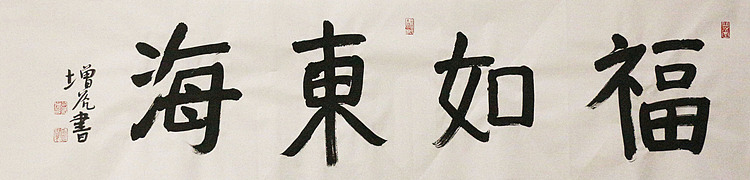 福如東海
增荒書